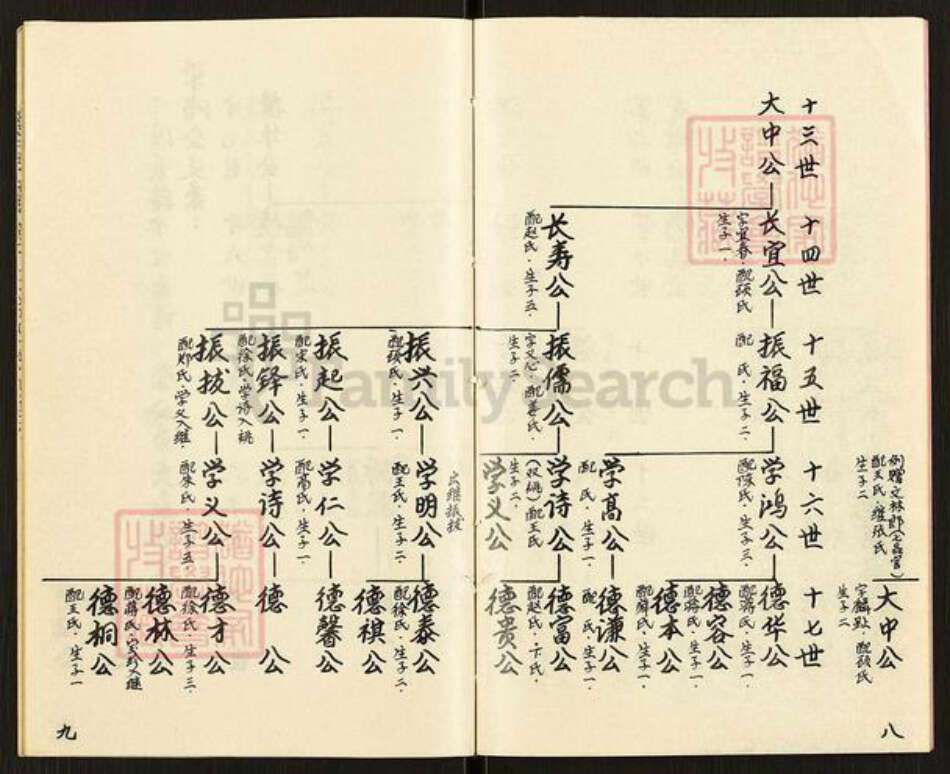 例赠文林郎(知县官)
配王氏·继张氏
生子二
大中公
字麟彩·配顾氏
生子二
八
十三世
大中公
十四世
长宜公
字宜春·配顾氏
生子一·
长寿公
配赵氏·生子五·
十五世
振福公
配 氏·生子二·
振儒公
字义心·配姜氏·
生子二
振兴公
配顾氏·生子一·
振起公
配宋氏·生子一·
振铎公
配徐氏·学诗入祧
振拔公
配郑氏·学义入继·
十六世
学鸿公
配陈氏·生子三·
学高公
配 氏·生子一·
学诗公
(双祧)配王氏
生子二·
学义公
出继振拔
学明公
配王氏·生子二·
学仁公
配高氏·生子一·
学诗公
学义公
配朱氏·生子五·
十七世
德华公
配蒋氏·生子一·
德容公
配蒋氏·生子一·
德本公
配 氏·生子一·
德谦公
配 氏·生子一·
德富公
配赵氏·卞氏·
德贵公
德泰公
配徐氏·生子二·
德祺公
德馨公
德 公
德才公
配徐氏·生子三·
德林公
配蒋氏·宝珍入继
德桐公
配王氏·生子一
九
FamilySearch